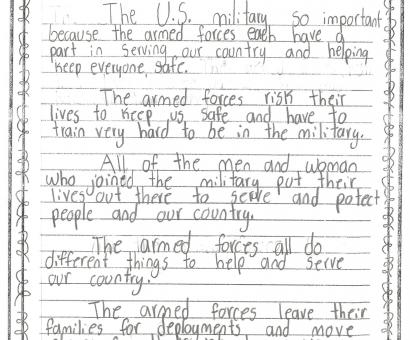 The U.S. military so important
because the armed forces each have a
part in serving our country and helping
keep everyone, safe.
The armed forces risk their
lives to keep us safe and have to
train very hard to be in the military.
All of the men and woman
who joined the military put their
lives out there to serve and potect
people and our country.
The armed forces all do
different things to help and serve
our country.
The armed forces leave their
families for deployments and move